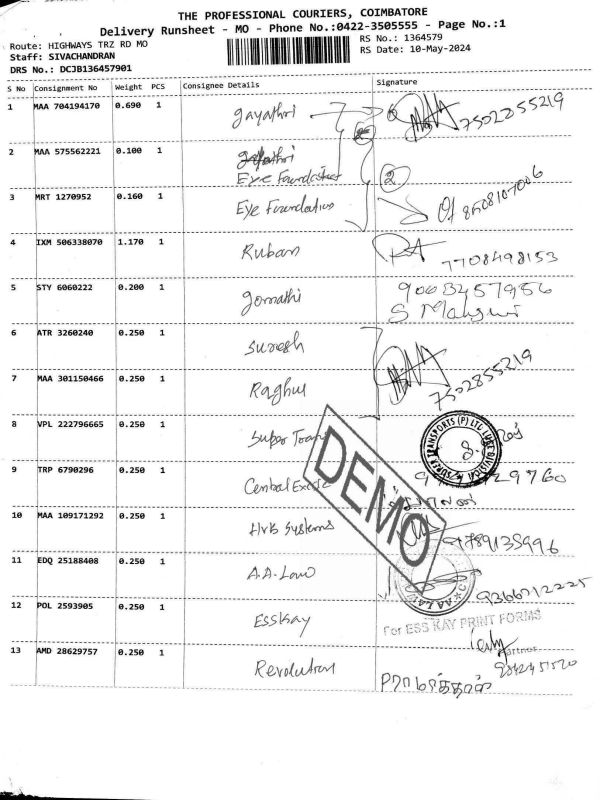 THE PROFESSIONAL COURIERS, COIMBATORE
Delivery Runsheet - MO - Phone No.:0422-3505555 - Page No.:1
Route: HIGHWAYS TRZ RD MO
RS No.: 1364579
Staff: SIVACHANDRAN
RS Date: 10-May-2024
DRS No.: DCJB136457901
S No Consignment No Weight PCS Consignee Details Signature
1 MAA 704194170 0.690 1 gayathri 7502855219
2 MAA 575562221 0.100 1
Eye Foundation 2
3 MRT 1270952 0.160 1 Eye Foundation 8508107006
4 IXM 506338070 1.170 1 Ruban 7708498153
5 STY 6060222 0.200 1 gomathi 9003457986
6 ATR 3260240 0.250 1 Suresh
7 MAA 301150466 0.250 1 Raghul 7502855219
8 VPL 222796665 0.250 1 Super
9 TRP 6790296 0.250 1 Central
10 MAA 109171292 0.250 1 HVB Systems 9789135996
11 EDQ 25188408 0.250 1 A.A. Law
12 POL 2593905 0.250 1 Esskay
For ESS KAY PRINT FORMS
Partner
13 AMD 28629757 0.250 1 Revolution
DEMO